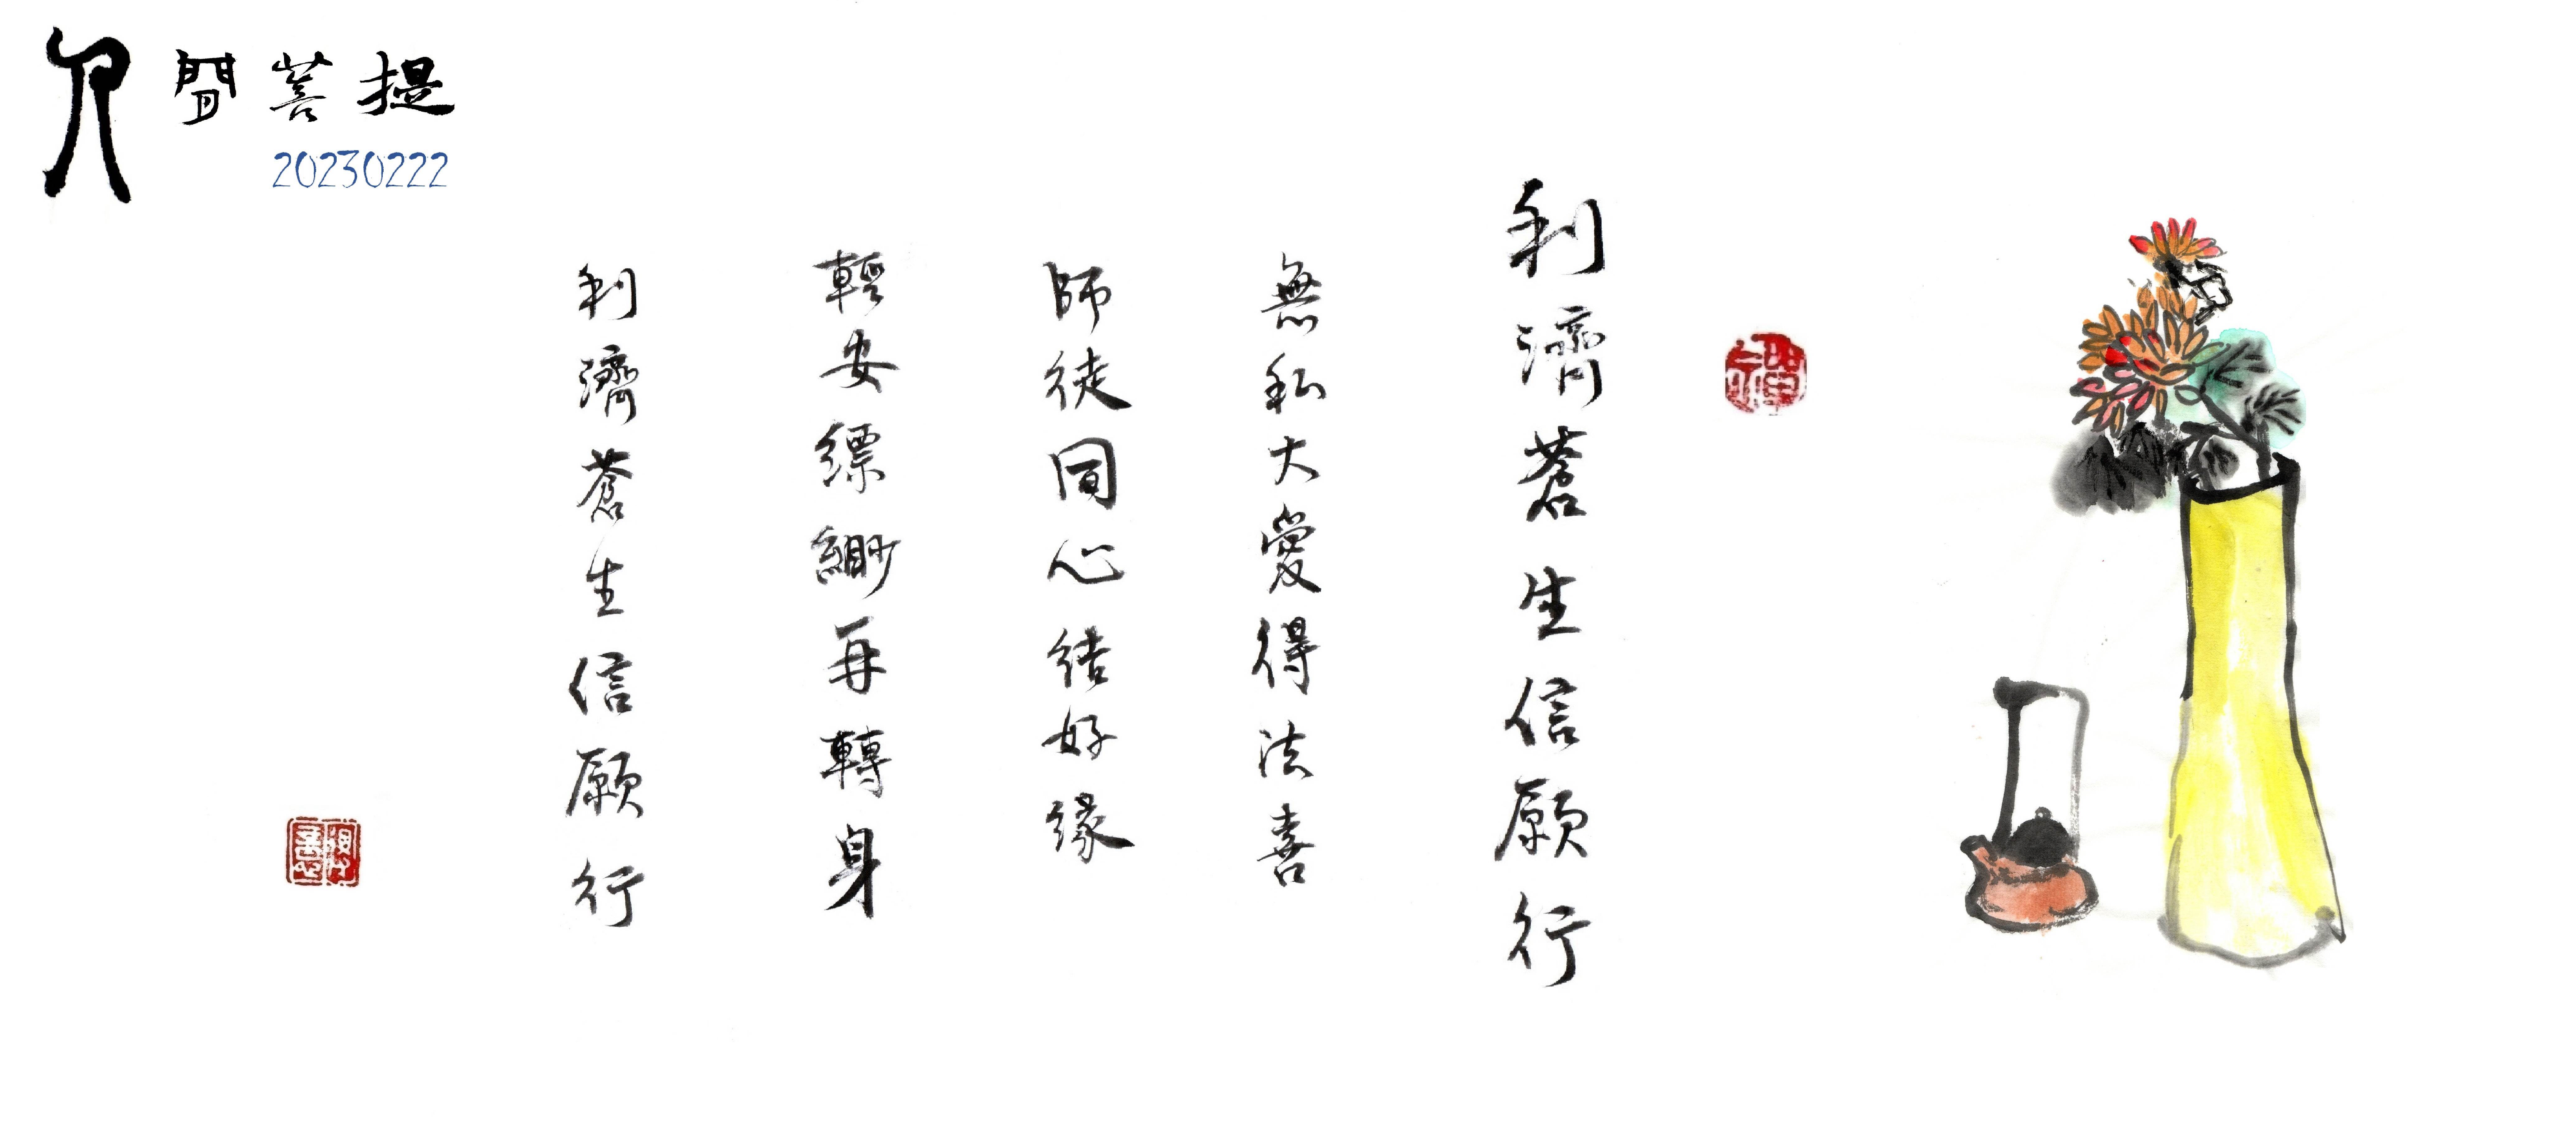 人間菩提
20230222
利濟蒼生信願行
無私大愛得法喜
師徒同心結好緣
輕安縹緲再轉身
利濟蒼生信願行